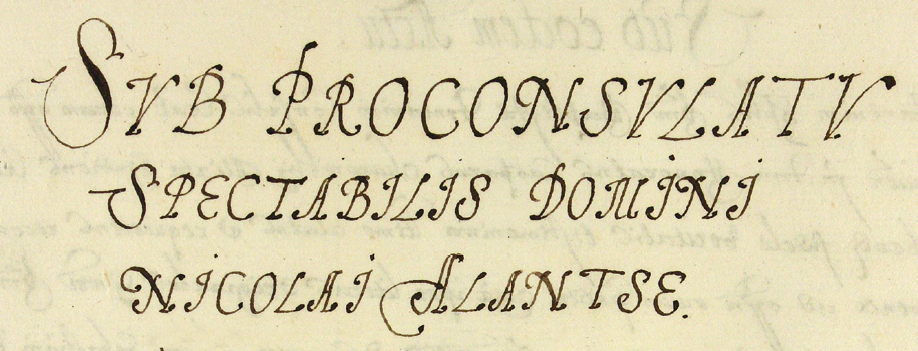 SVB PROCONSVLATV
SPECTABILIS DOMINI
NICOLAI ALANTSE.